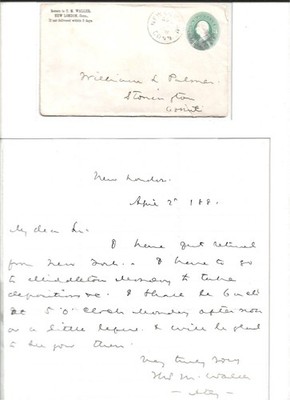 Return to T. M. WALLER,
NEW LONDON, Conn.,
If not delivered within 5 days.
William L Palmer
Stonington
Conn
New London.
April 2d 188
My dear Sir
I have just returned
from New York. I have to go
to Middletown Monday to take
depositions &c. I shall be back
at 5 'O' Clock Monday afternoon
or a little before & will be glad
to see you then.
Very truly yours
Thos M. Waller